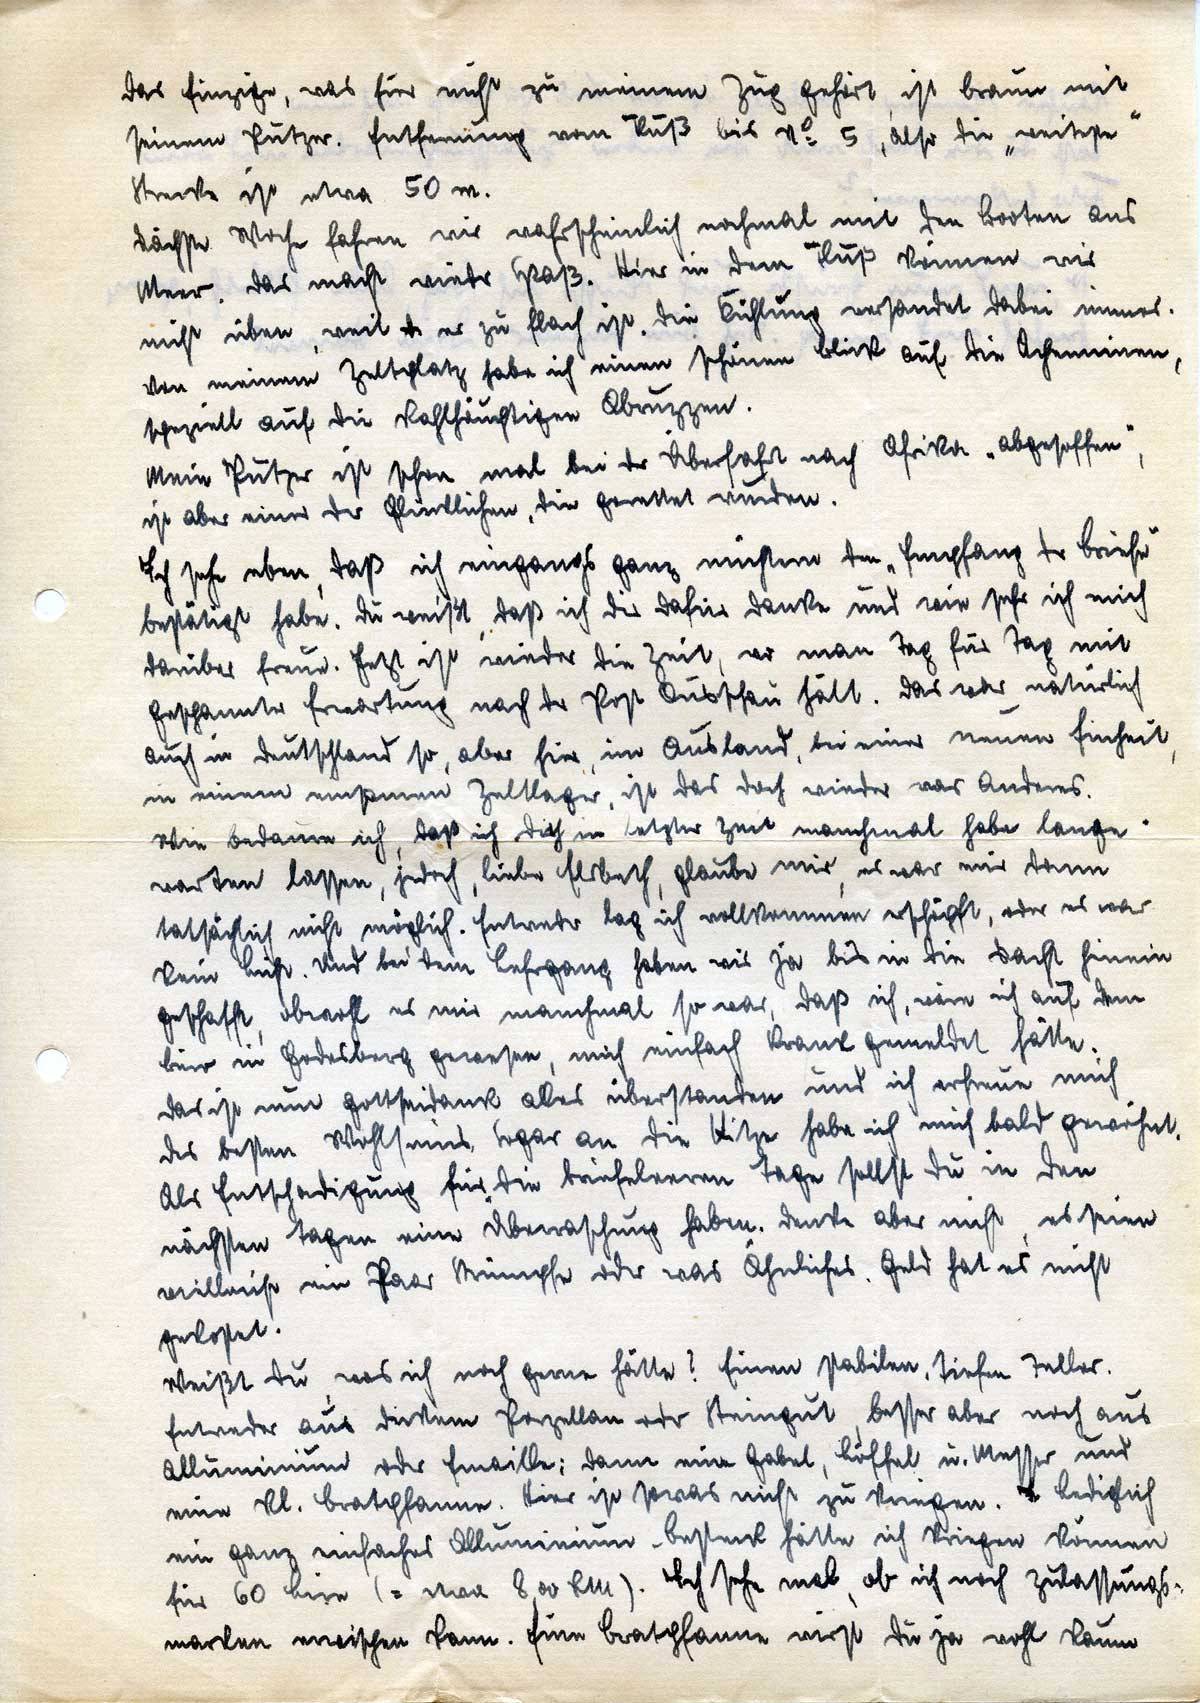 Das Einzige, was hier nicht zu meinem Zug gehört, ist Braun mit
seinem Putzer. Entfernung vom Fluß bis No 5, also die „weiteste“
Strecke ist etwa 50 m.
Nächste Woche fahren wir wahrscheinlich nochmal mit den Booten ans
Meer. Das macht wieder Spaß. Hier in dem Fluß können wir
nicht üben, weil er zu flach ist. Die Kühlung versandet dabei immer.
Von meinem Zeltplatz habe ich einen schönen Blick auf die Apenninen,
speziell auf die Abruzzen.
Mein Putzer ist schon mal bei der Überfahrt nach Afrika „abgesoffen“,
ist aber einer der Glücklichen, die gerettet wurden.
Ich sehe eben, daß ich eingangs ganz nüchtern den „Empfang der Briefe“
bestätigt habe. Du weißt, daß ich dir dafür danke und wie sehr ich mich
darüber freue. Jetzt ist wieder die Zeit, wo man Tag für Tag mit
gespannter Erwartung nach der Post Ausschau hält. Das war natürlich
auch in Deutschland so, aber hier, im Ausland, bei einer neuen Einheit,
in einem einsamen Zeltlager, ist das doch wieder was Anderes.
Wie bedaure ich, daß ich dich in letzter Zeit manchmal habe lange
warten lassen, jedoch, liebe Elsbeth, glaube mir, es war mir dann
tatsächlich nicht möglich. Entweder lag ich vollkommen erschöpft, oder es war
kein Licht. Und bei dem Lehrgang haben wir ja bis in die Nacht hinein
geschafft, obwohl es mir manchmal so war, daß ich, wäre ich auf dem
Büro in Godesberg gewesen, mich einfach krank gemeldet hätte.
Das ist nun gottseidank alles überstanden und ich erfreue mich
des besten Wohlseins. Sogar an die Hitze habe ich mich bald gewöhnt.
Als Entschädigung für die briefleeren Tage sollst Du in den
nächsten Tagen eine Überraschung haben. Denke aber nicht, es seien
vielleicht ein Paar Strümpfe oder was Ähnliches. Geld hat es nicht
gekostet.
Weißt Du, was ich noch gerne hätte? Einen stabilen, tiefen Teller.
Entweder aus dickem Porzellan oder Steingut, besser aber noch aus
Alluminium oder Emaille; dann eine Gabel, Löffel u. Messer und
eine kl. Bratpfanne. Hier ist sowas nicht zu kriegen. Lediglich
ein ganz einfaches Alluminium-Besteck hätte ich kriegen können
für 60 Lire (= etwa 8,00 RM). Ich sehe mal, ob ich noch Zulassungs-
marken erwischen kann. Eine Bratpfanne wirst Du ja wohl kaum